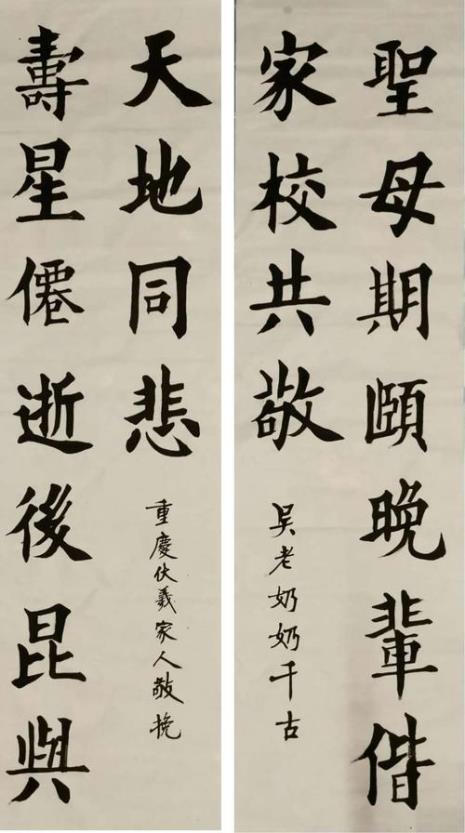 聖母期頤晚輩偕
家校共敬
吴老奶奶千古
壽星僊逝後昆與
天地同悲
重慶伏羲家人敬挽